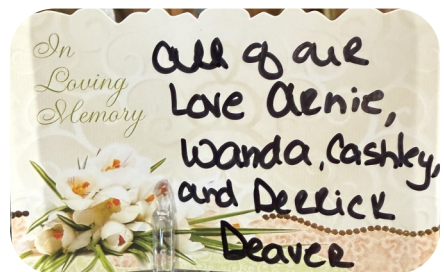 In
Loving
Memory
all of our
Love Arnie,
Wanda, Cashley,
and Derrick
Deaver